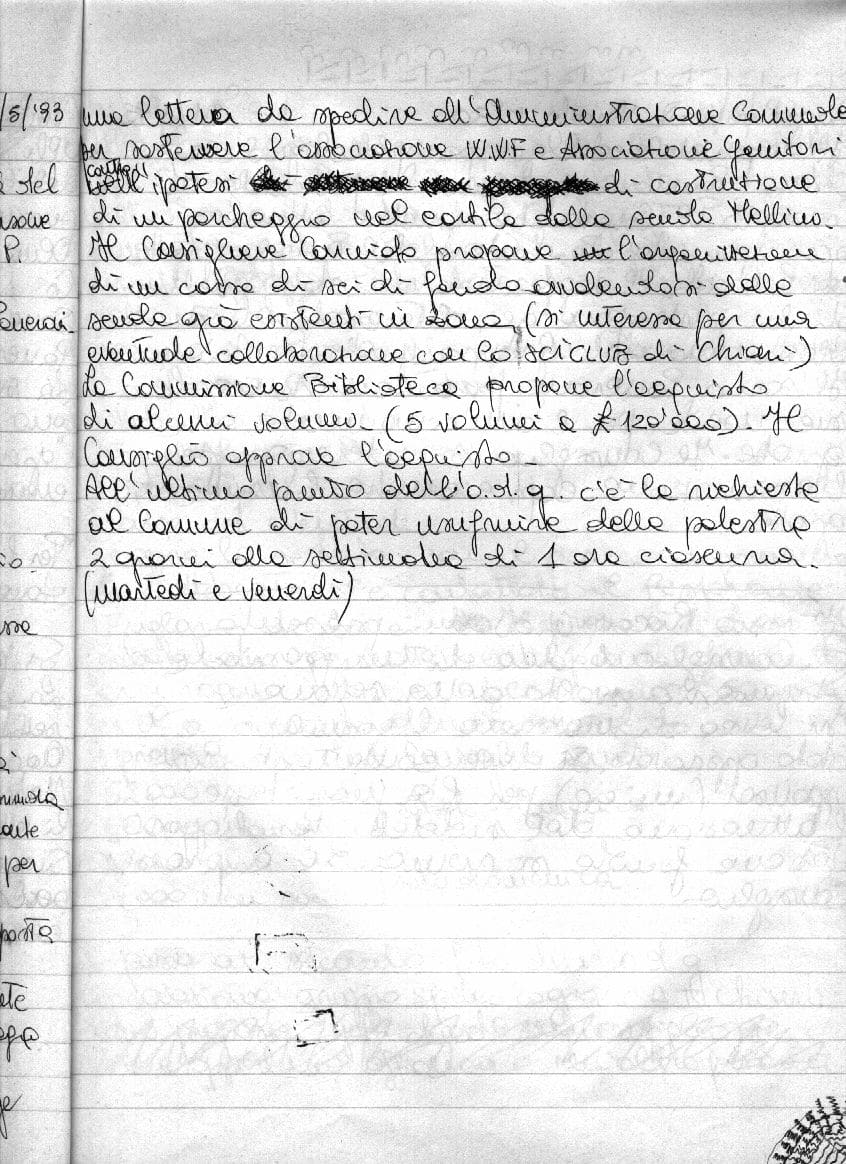 /5/'93
una lettera da spedire all'Amministrazione Comunale
per sostenere l'associazione W.W.F e Associazione Genitori
contro l'ipotesi di costruzione
di un parcheggio nel cortile della scuola Mellino.
Il Consigliere propone l'organizzazione
di un corso di sci di fondo avvalendosi delle
scuole già esistenti in zona, (si interessa per una
eventuale collaborazione con lo SCICLUB di Chiari)
La Commissione Biblioteca propone l'acquisto
di alcuni volumi. (5 volumi a £ 120'000). Il
Consiglio approva l'acquisto.
All'ultimo punto dell'o.d.g. c'è la richiesta
al Comune di poter usufruire della palestra
2 giorni alla settimana di 1 ora ciascuna.
(martedì e venerdì)
P.
per
posta